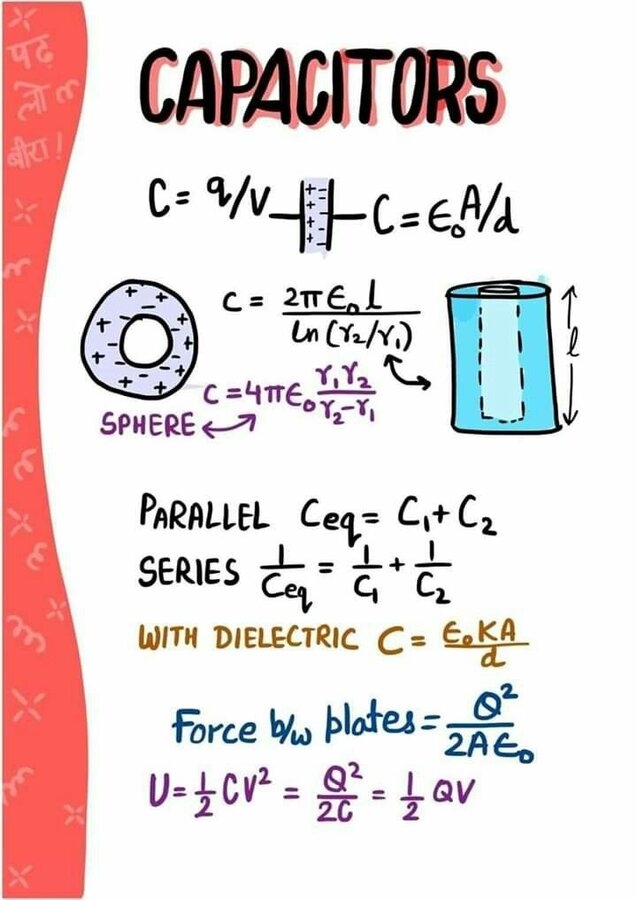 पढ़
लो
बीरा!
CAPACITORS
C = q/V
C = ϵ₀A/d
C = 2πϵ₀l / ln(r₂/r₁)
l
C = 4πϵ₀ r₁r₂ / r₂-r₁
SPHERE
PARALLEL Ceq = C₁ + C₂
SERIES 1/Ceq = 1/C₁ + 1/C₂
WITH DIELECTRIC C = ϵ₀KA / d
Force b/w plates = Q² / 2Aϵ₀
U = 1/2 CV² = Q²/2C = 1/2 QV